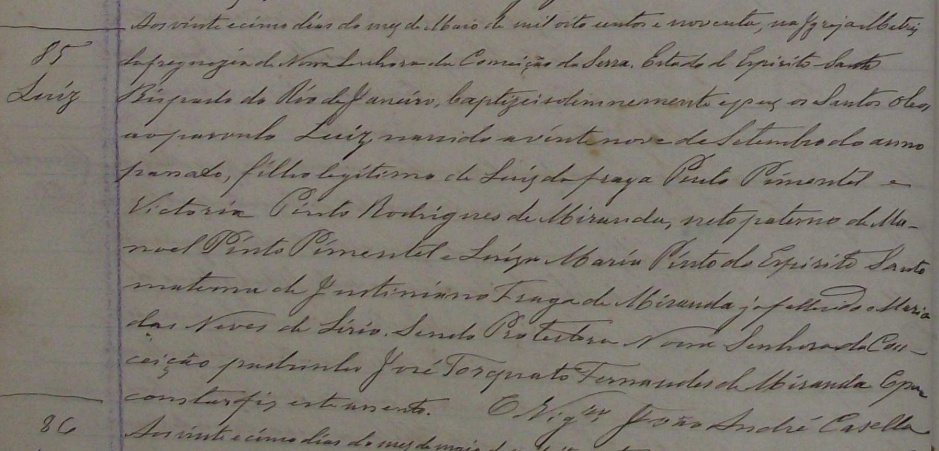 Aos vinte e cinco dias do mez de Maio de mil oito centos e noventa, na Igreja Matriz
85
da freguezia de Nossa Senhora da Conceição da Serra, Estado do Espirito Santo
Luiz
Bispado do Rio de Janeiro, baptizei solemnemente e puz os Santos Oleos
ao parvulo Luiz, nascido a vinte nove de Setembro do anno
passado, filho legitimo de Luiz da fraga Pinto Pimentel e
Victoria Pinto Rodrigues de Miranda, neto paterno de Ma-
noel Pinto Pimentel e Luiza Maria Pinto do Espirito Santo
materno de Justiniano Fraga de Miranda ja fallecido e Maria
das Neves de Sirio. Sendo Protectora Nossa Senhora da Con-
ceição padrinho José Torquato Fernandes de Miranda E para
constar fiz este assento. O Vigrº João André Casella
86
Aos vinte e cinco dias do mez de maio de